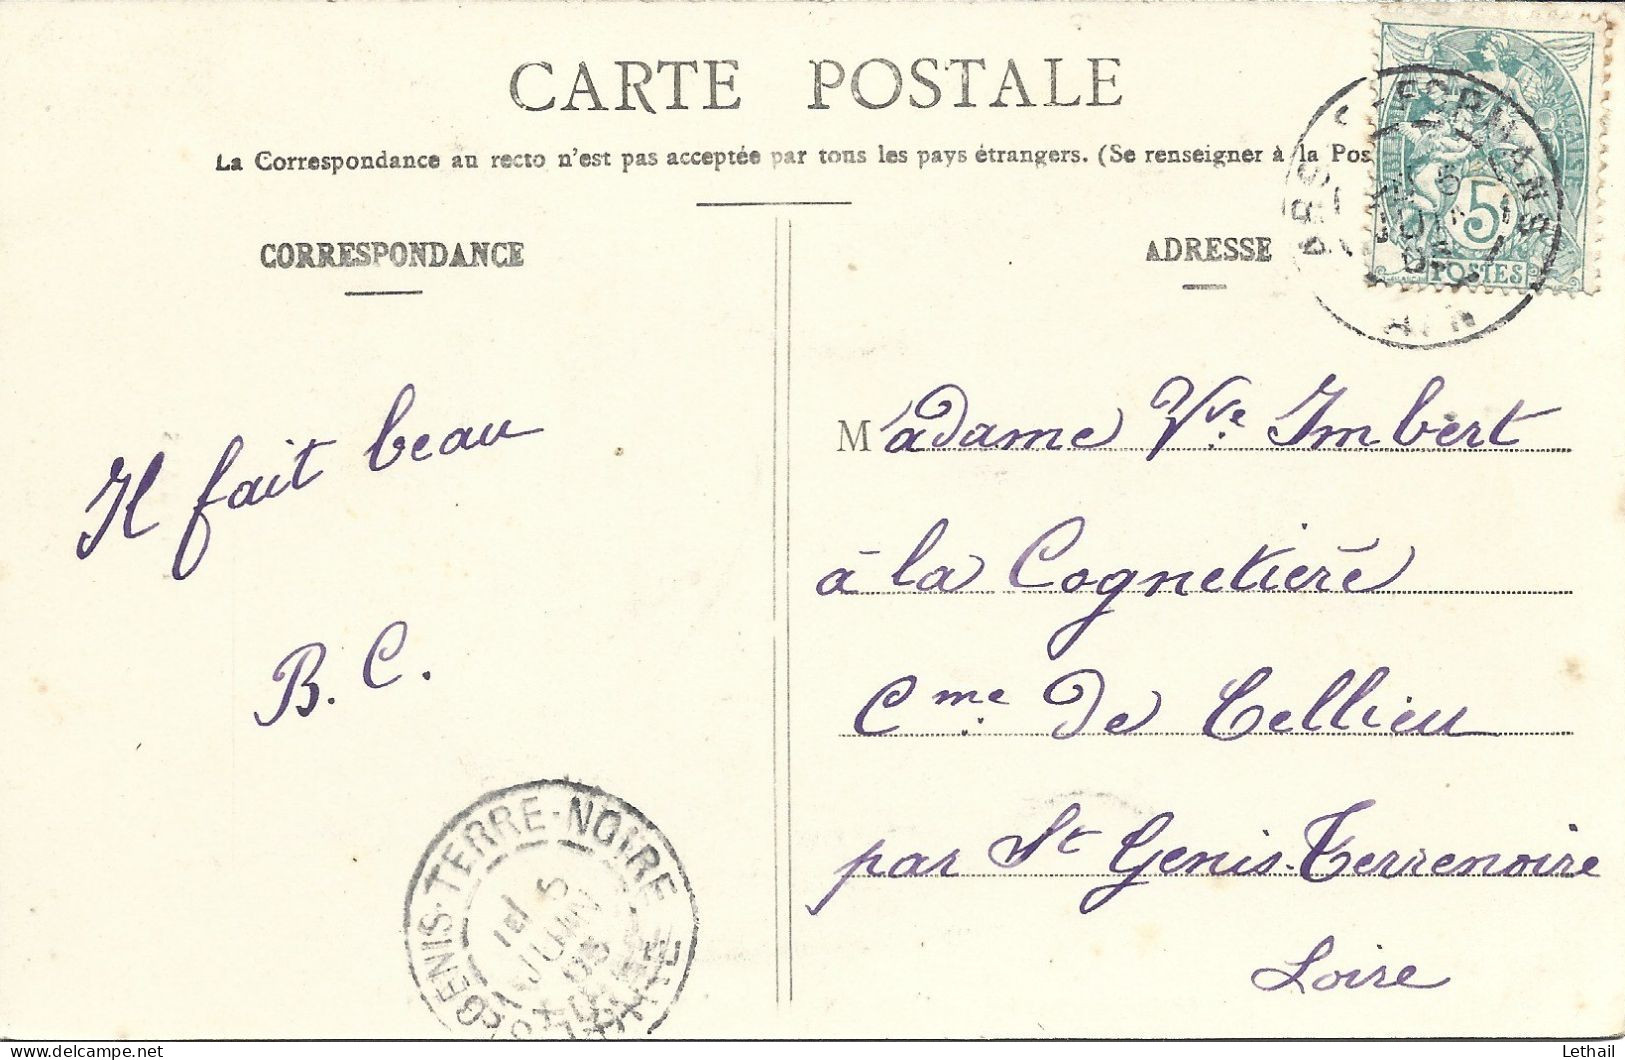 CARTE POSTALE
La Correspondance au recto n'est pas acceptée par tous les pays étrangers. (Se renseigner à la Pos
CORRESPONDANCE
ADRESSE
FRANÇAISE
5
POSTES
AIN
Il fait beau
B. C.
Madame Vve Imbert
à la Cognetière
Cme de Cellieu
par St Genis-Terrenoire
Loire
GENIS-TERRE-NOIRE
5
JUIN
05
Lethail